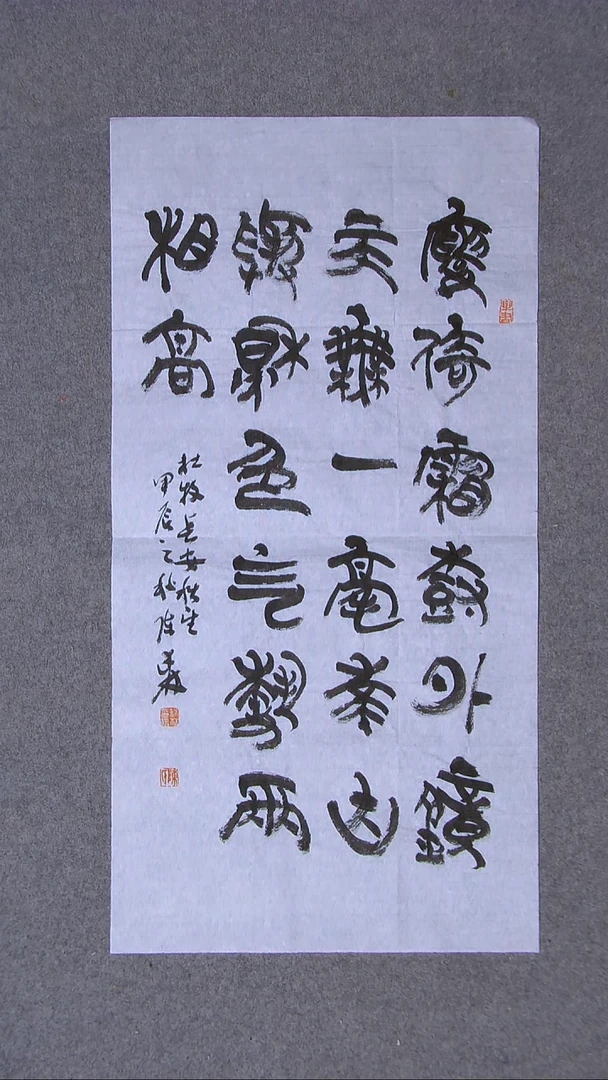 廔倚霜尌外鏡
天無一毫南山
與秋色气勢兩
相高
杜牧长安秋望
甲辰之秋